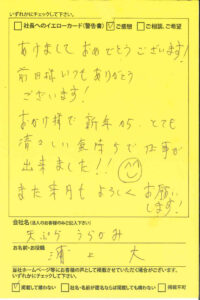 いずれかにチェックして下さい。
□社長へのイエローカード(警告書) ☑ご感想 □ご相談、ご希望
あけまして おめでとう ございます!
前日様 いつも ありがとう
ございます!
おかげ様で 新年から、とても
清々しい 気持ちで 仕事が
出来ました!!
また 来月も よろしく お願い
します!
会社名(法人のお客様のみご記入下さい)
天ぷら うらかみ
お名前・お役職
浦上 大
当社ホームページ等にお客様の声として掲載させていただく場合がございます。
いずれかにチェックして下さい。
☑掲載して構わない □社名・名前が匿名ならば掲載しても構わない □掲載不可